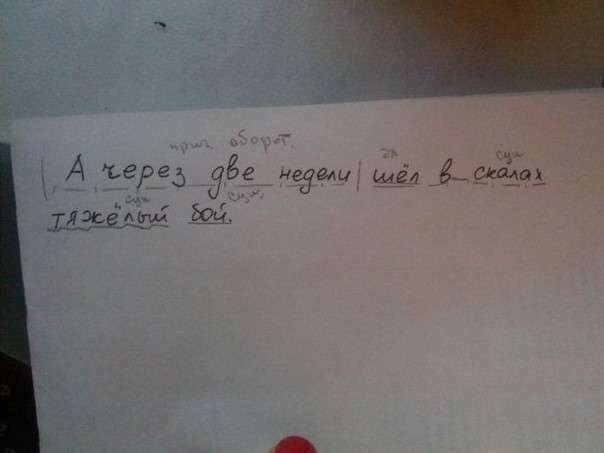 прич. оборот.
гл сущ
А через две недели шёл в скалах
сущ сущ.
тяжёлый бой.